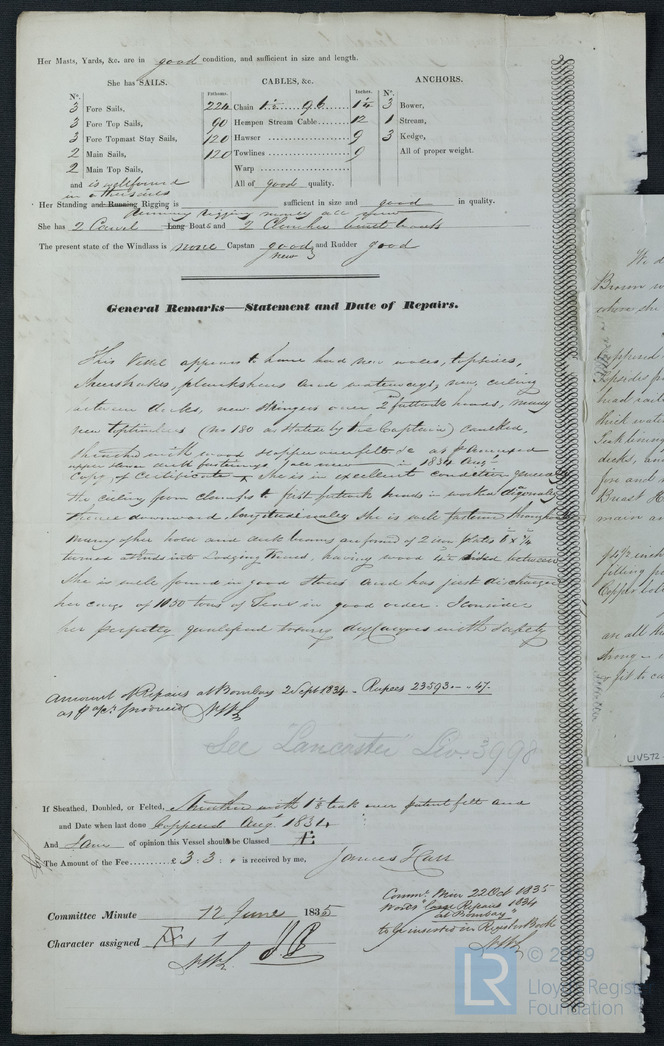 Her Masts, Yards, &c. are in good condition, and sufficient in size and length.
She has SAILS.
CABLES, &c.
ANCHORS.
N°.
Fathoms.
Inches.
N°.
3 Fore Sails,
3 Fore Top Sails,
3 Fore Topmast Stay Sails,
2 Main Sails,
2 Main Top Sails,
and is well found
in other sails
224 Chain
90 Hempen Stream Cable 12
120 Hawser 9
120 Towlines 9
Warp
All of good quality.
3 Bower,
1 Stream,
3 Kedge,
All of proper weight.
Her Standing and Running Rigging is sufficient in size and good in quality.
Running Rigging mostly all new
She has 2 Carvel Long Boats and 2 Clincher built boats
The present state of the Windlass is none Capstan good and Rudder good
new
General Remarks—Statement and Date of Repairs.
This Vessel appears to have had new wales, topsides,
Sheerstrakes, planksheers and waterways, new ceiling
between decks, new stringers over 2nd futtock heads, many
new toptimbers (no 180 as stated by the Captain) caulked,
sheathed with wood & copper over felt &c as pr annexed
in 1834 Aug
Copy of Certificate She is in excellent condition generally
the ceiling from clamps to first futtock heads is worked diagonally
thence downward longitudinally She is well fastened throughout
many other hold and deck beams are of 2 iron plates
turned at Ends into Lodging Knees, having wood sided between
She is well found in good Stores and has just discharged
her cargo of 1030 tons of Teas in good order. I consider
her perfectly qualified to carry dry Cargoes with safety
Amount of Repairs at Bombay 2 Sept 1834 - Rupees 23593 - " 47.
as pr a/cs produced
See "Lancaster" Liv. 3998
If Sheathed, Doubled, or Felted, Sheathed with teak over patent felt and
and Date when last done Coppered Augt 1834
And I am of opinion this Vessel should be Classed Æ
The Amount of the Fee £ 3 : 3 : is received by me,
James Hall
Committee Minute 12 June 1835
Character assigned Æ 1
Committee Min 22 Oct 1835
Words "large Repairs 1834
at Bombay"
to be inserted in Register Book
We
Brown
when she
coppered
Topsides
head rails
thick
decks, and
fore and
Breast H
main and
filling
Copper
an all
strong
fit to ca
LIV572
© 2019
LR
Lloyd's Regist
Foundation